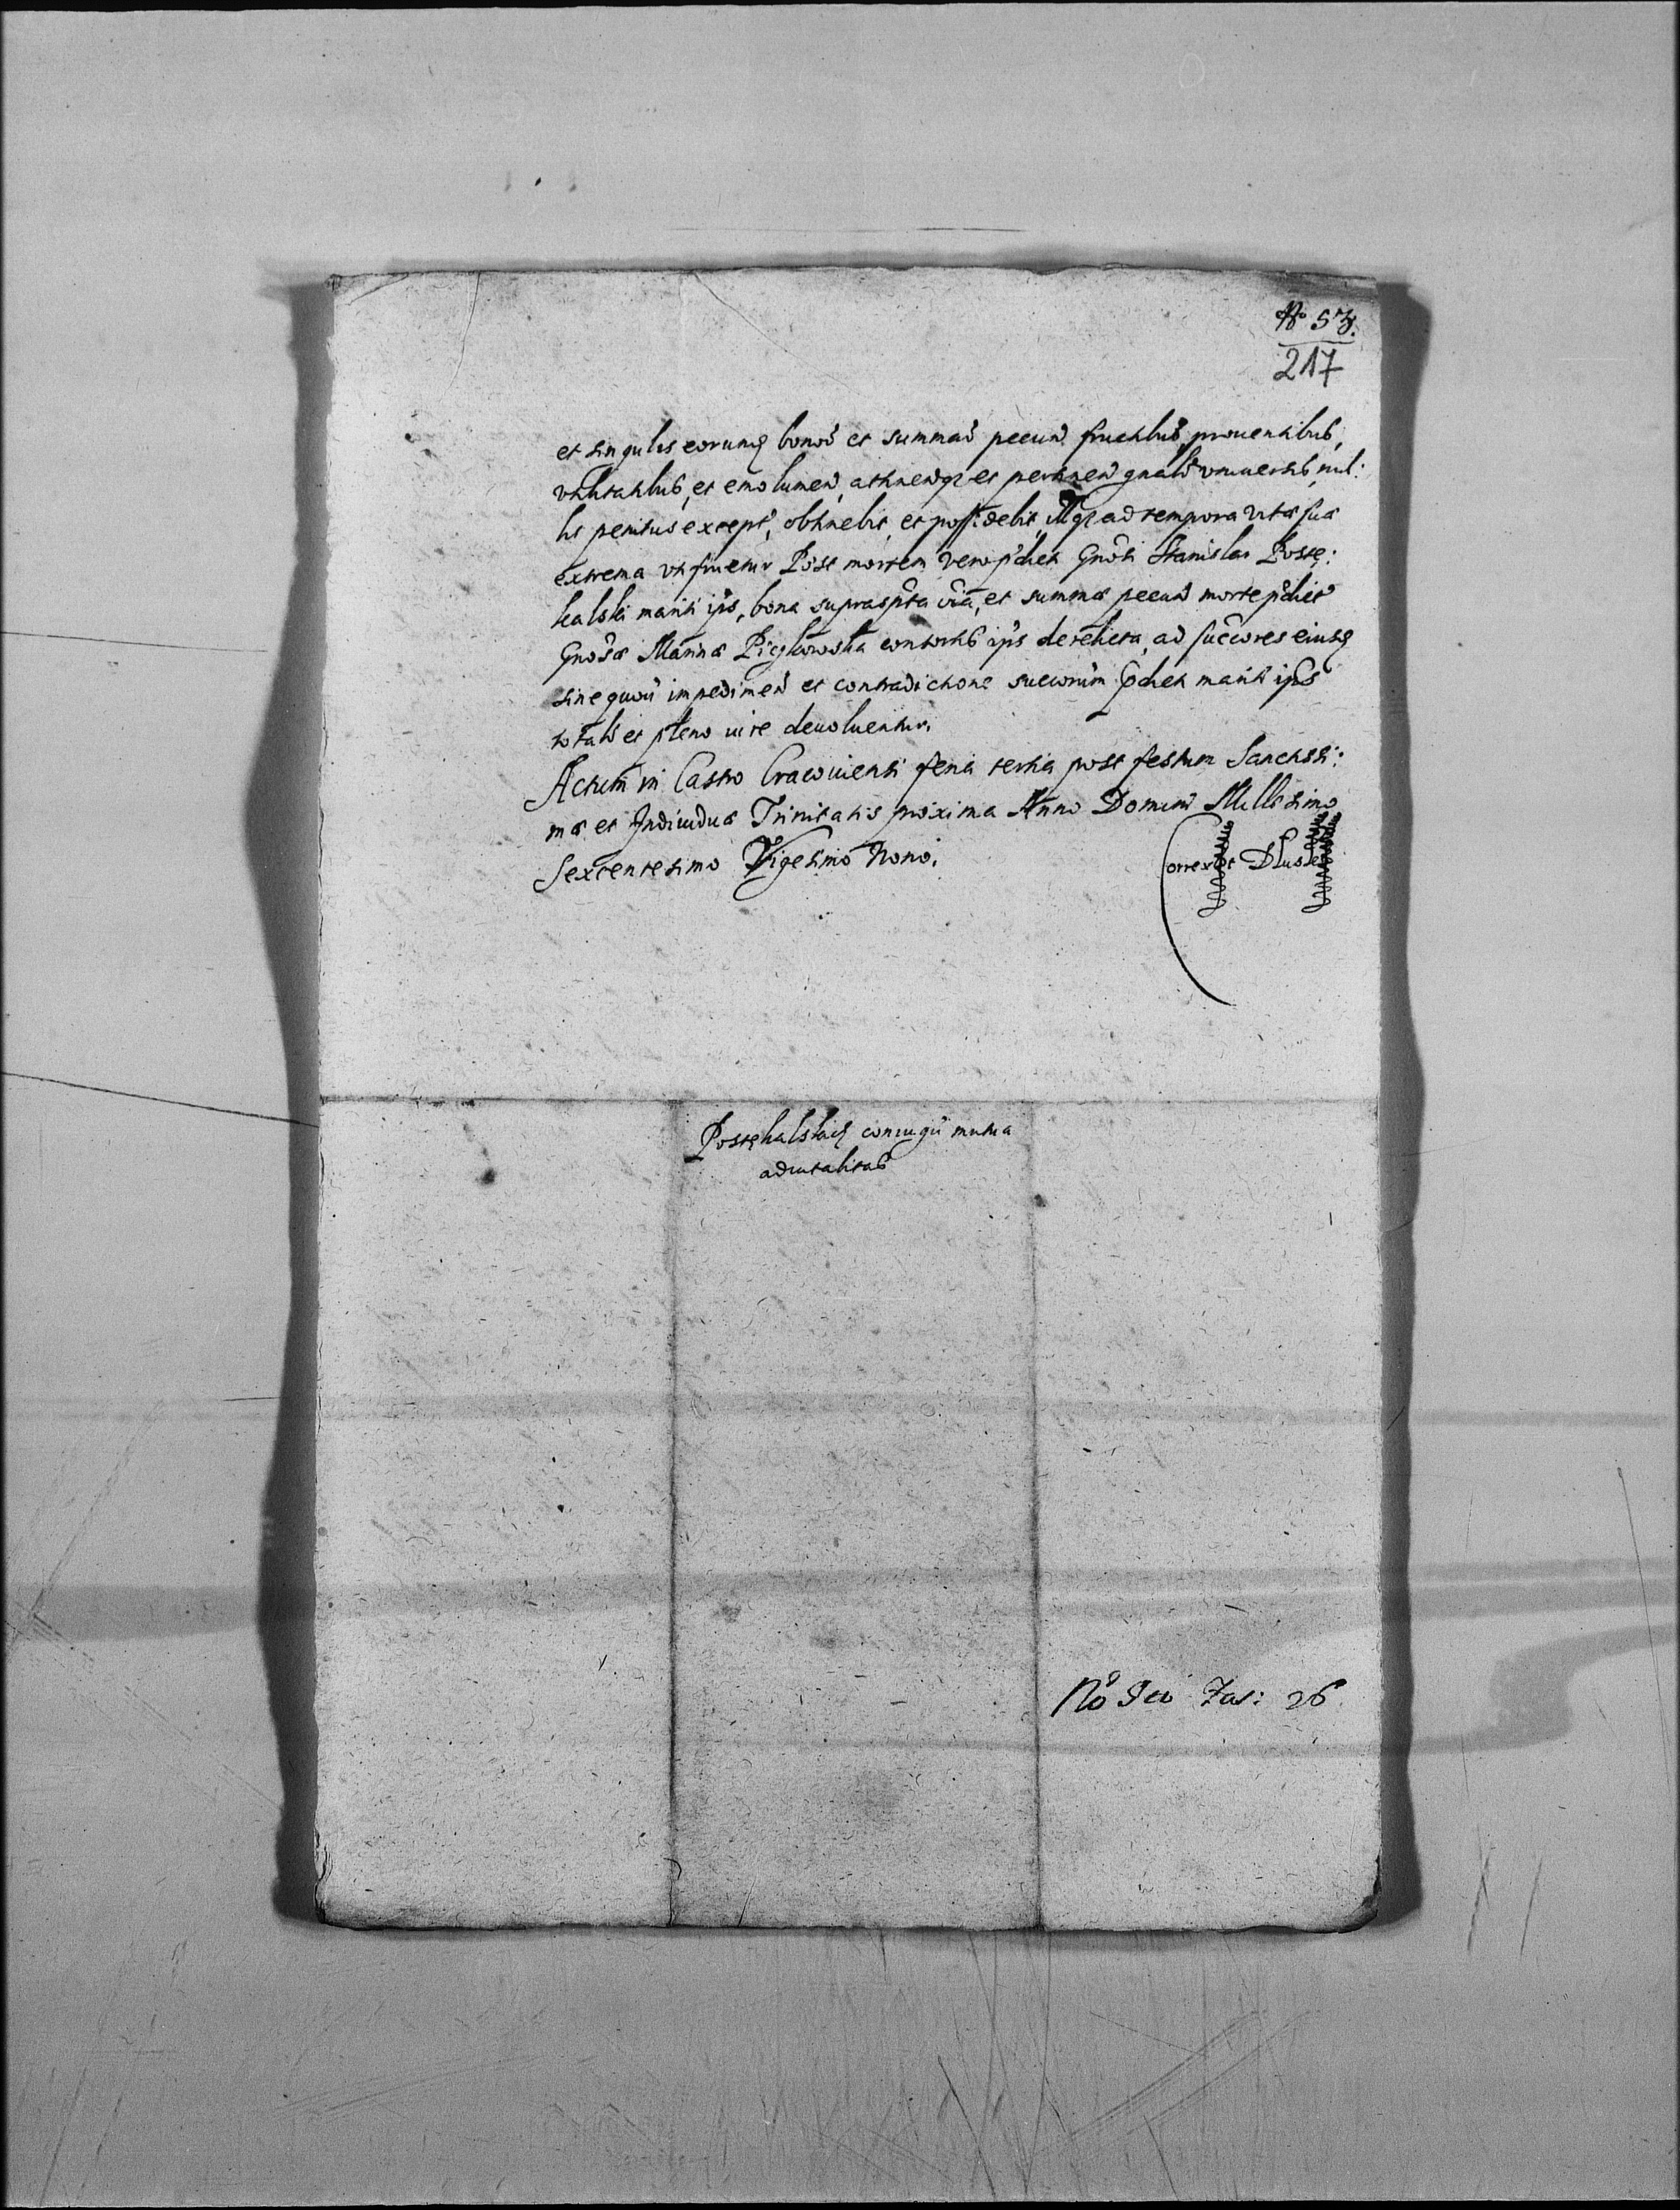 No 57.
217
et singulis eorumq bonor et summar pecun fructibus, prouentibus,
vtilitatibus, et emolumen, attinenqz et pertinen gnalr vniuersis, nul:
lis penitus except, obtinebit, et possidebit, illqz ad tempora vitæ suæ
extrema vtifruetur Post mortem vero pdicti Gnosi Stanislai Postę:
kalski mariti ipis, bona suprascpta oia, et summæ pecun morte pdictæ
Gnosæ Marinæ Pigłowska consortis ipis derelicta, ad succores eiusq
sine quouis impedimen et contradictione succorum pdicti mariti ipis
totalr et pleno iure deuoluentur.
Actum in Castro Cracouiensi feria tertia post festum Sanctissi:
mæ et Indiuiduæ Trinitatis proxima Anno Domini Millesimo
Sexcentesimo Vigesimo Nono.
Correxit
Postękalskich coniugu mutua
aduitalitas
No Fas: 26